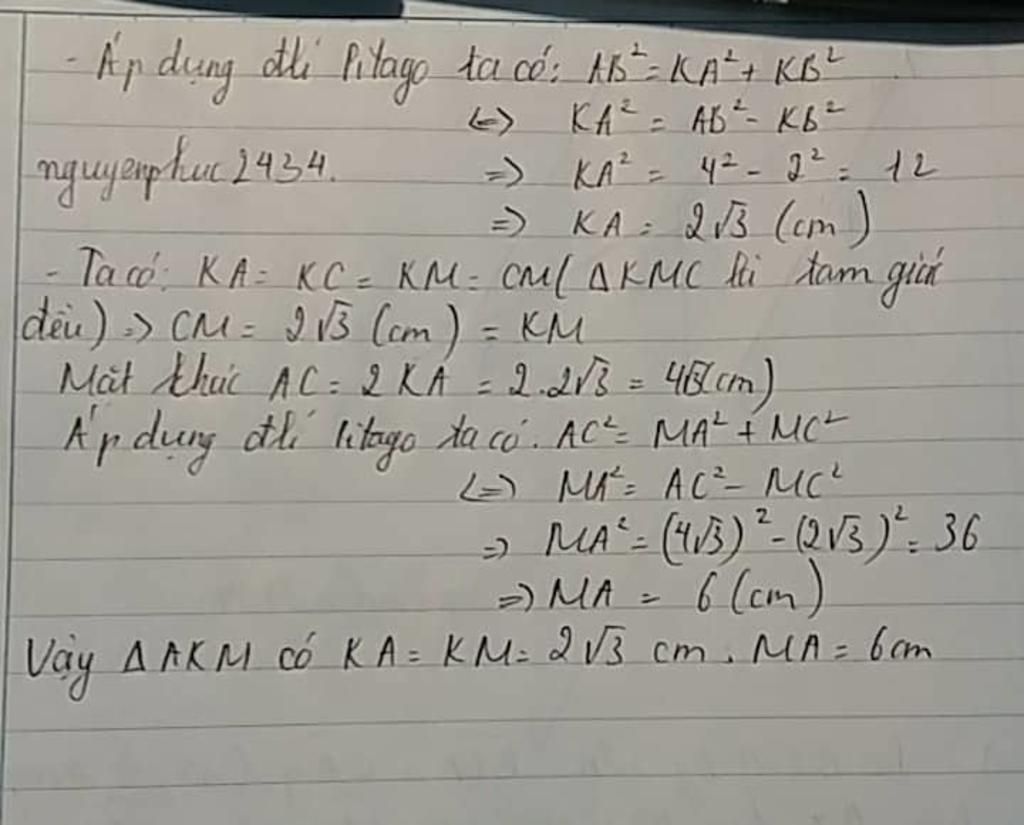 - Áp dụng đlí Pitago ta có: AB² = KA² + KB²
<=> KA² = AB² - KB²
nguyenphuc2434. => KA² = 4² - 2² = 12
=> KA = 2√3 (cm)
- Ta có: KA = KC = KM = CM ( Δ KMC là tam giác
đều) => CM = 2√3 (cm) = KM
Mặt khác AC = 2 KA = 2.2√3 = 4√3(cm)
Áp dụng đlí Pitago ta có. AC² = MA² + MC²
<=> MA² = AC² - MC²
=> MA² = (4√3)² - (2√3)² = 36
=> MA = 6 (cm)
Vậy Δ AKM có KA = KM = 2√3 cm. MA = 6cm